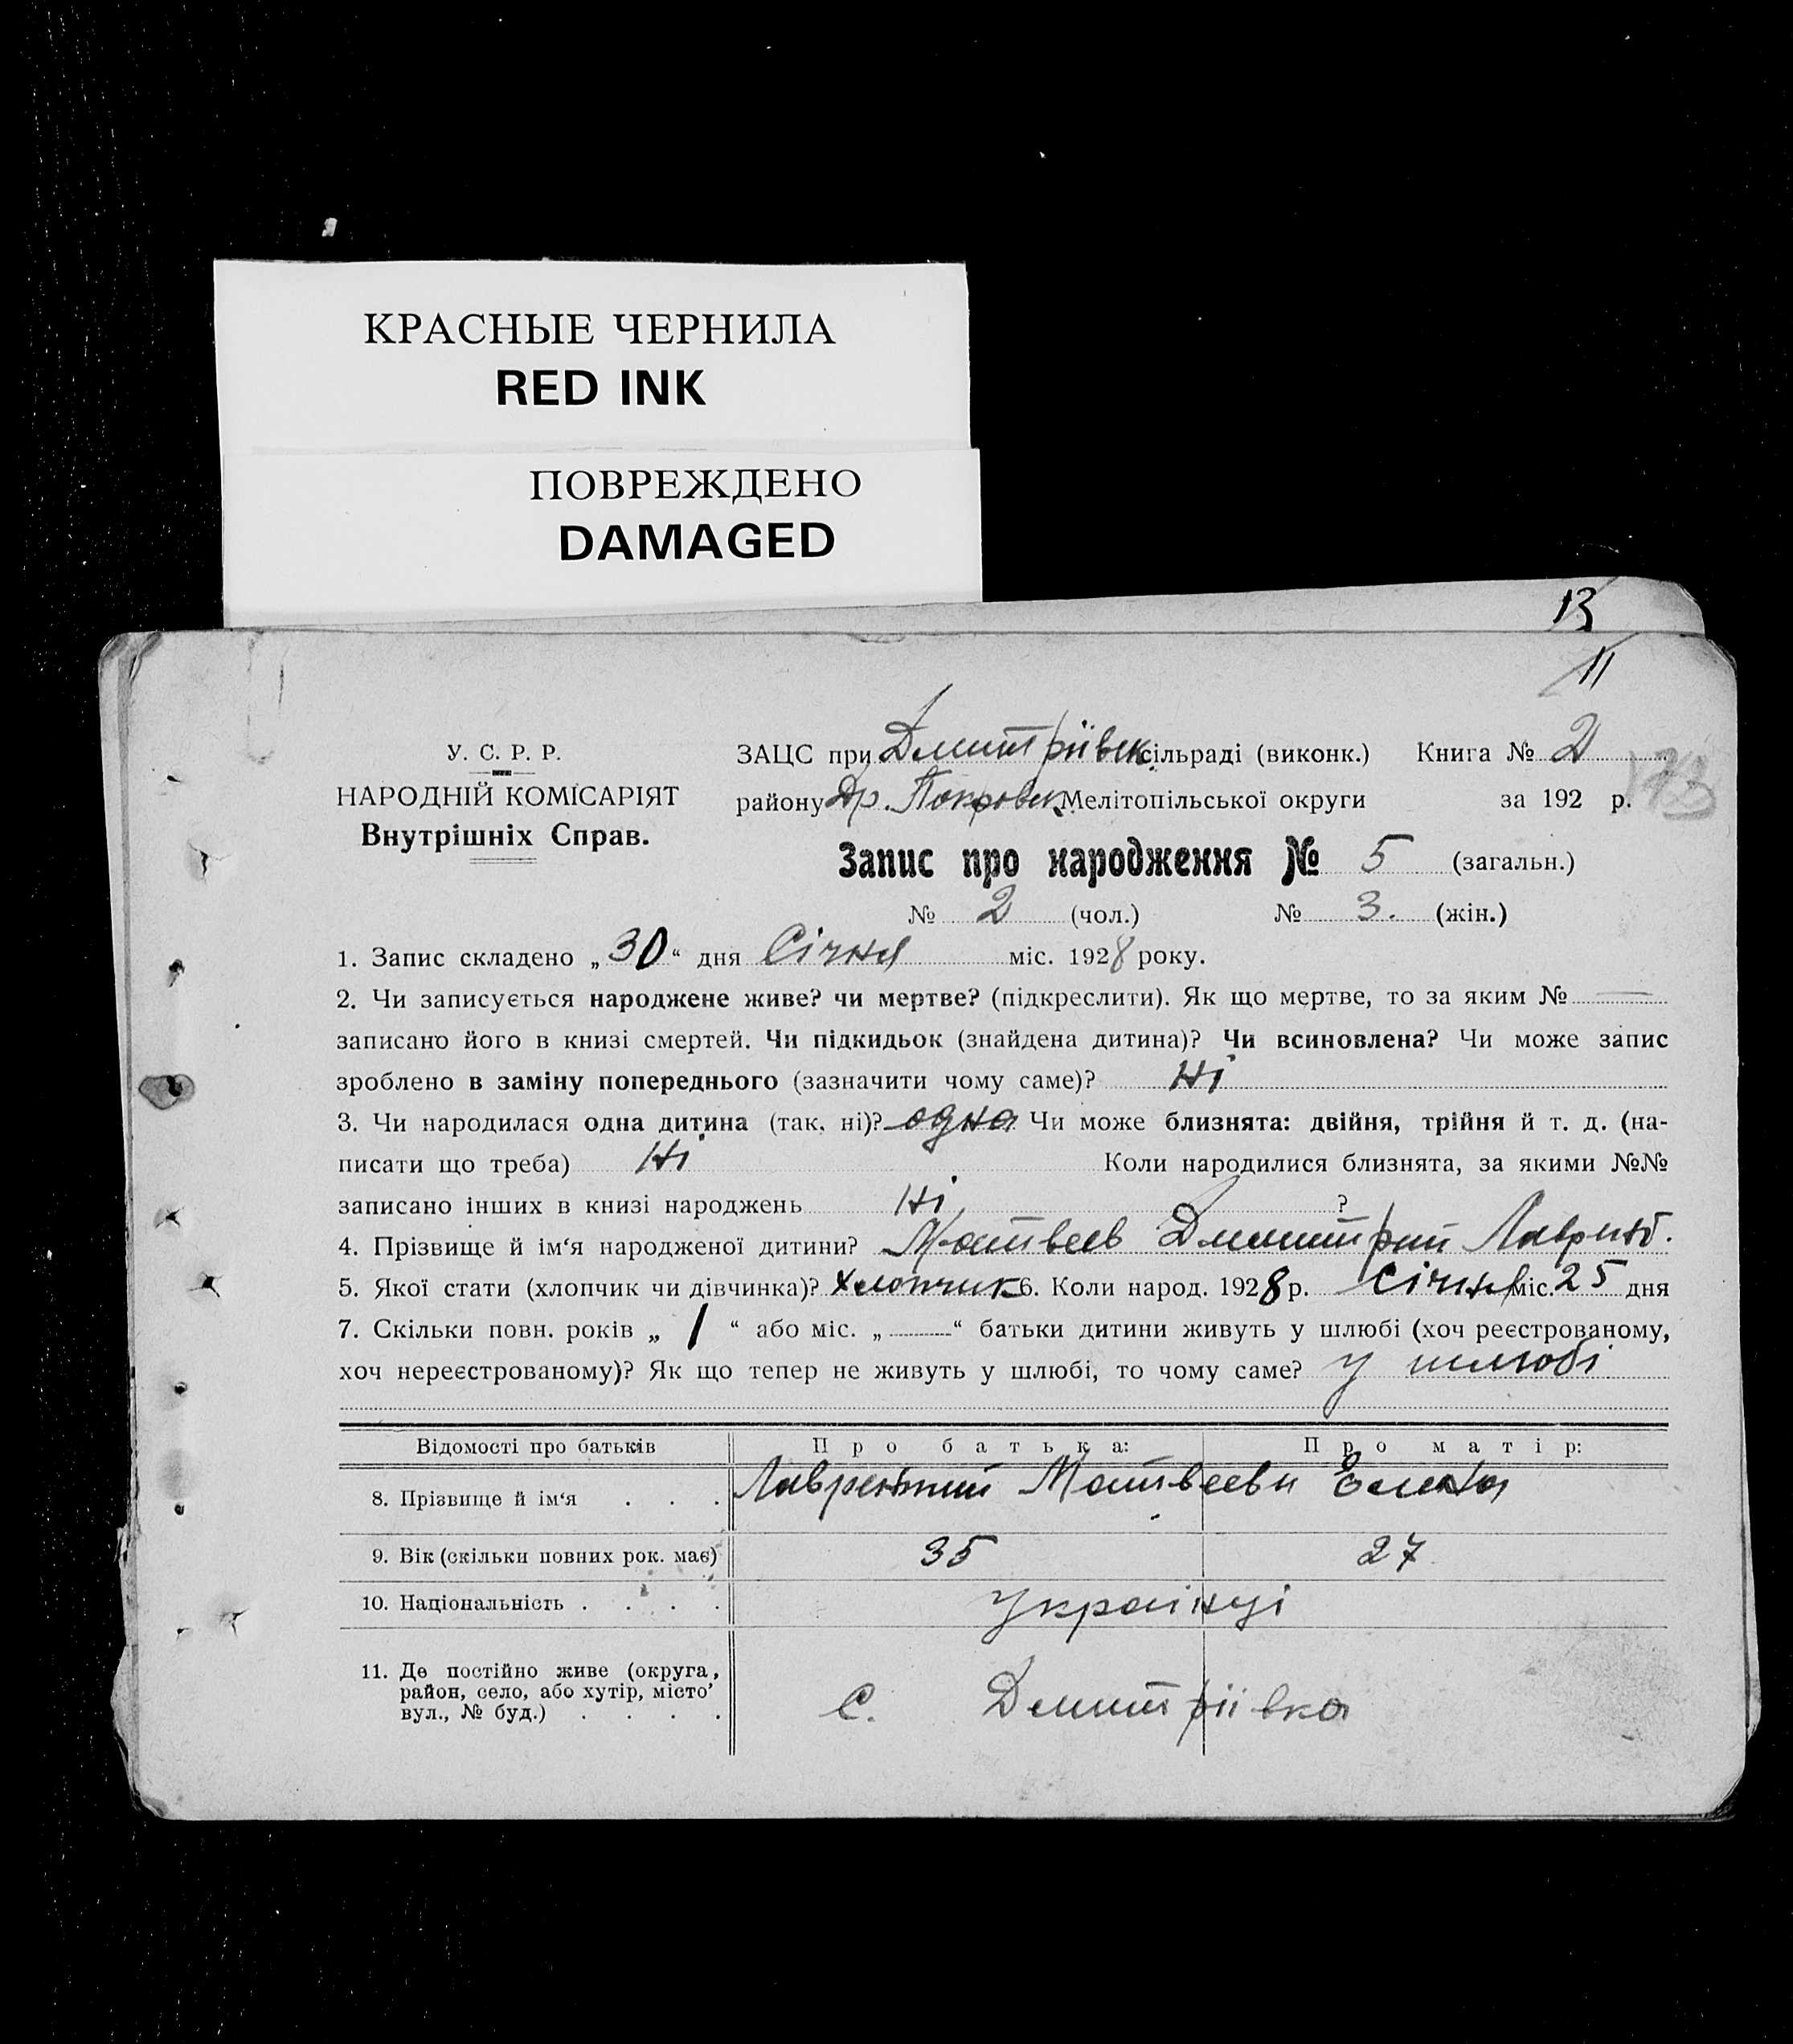 КРАСНЫЕ ЧЕРНИЛА
RED INK
ПОВРЕЖДЕНО
DAMAGED
13
11
У. С. Р. Р.
НАРОДНІЙ КОМІСАРІЯТ
Внутрішніх Справ.
ЗАЦС при Дмитріївск. сільраді (виконк.) Книга № 2
району Др. Покровск. Мелітопільської округи за 192 р.
Запис про народження № 5 (загальн.)
№ 2 (чол.) № 3. (жін.)
1. Запис складено „30“ дня Січня міс. 1928 року.
2. Чи записується народжене живе? чи мертве? (підкреслити). Як що мертве, то за яким № —
записано його в книзі смертей. Чи підкидьок (знайдена дитина)? Чи всиновлена? Чи може запис
зроблено в заміну попереднього (зазначити чому саме)? Ні
3. Чи народилася одна дитина (так, ні)? одна Чи може близнята: двійня, трійня й т. д. (на-
писати що треба) Ні Коли народилися близнята, за якими №№
записано інших в книзі народжень Ні ?
4. Прізвище й ім‘я народженої дитини? Матвеев Дмитрий
5. Якої стати (хлопчик чи дівчинка)? хлопчик 6. Коли народ. 1928 р. Січня міс. 25 дня
7. Скільки повн. років „ 1 “ або міс. „ — “ батьки дитини живуть у шлюбі (хоч реєстрованому,
хоч нереєстрованому)? Як що тепер не живуть у шлюбі, то чому саме? у шлюбі
Відомості про батьків Про батька: Про матір:
8. Прізвище й ім‘я . . . Лаврентий Матвееви Елена
9. Вік (скільки повних рок. має) 35 27
10. Національність . . . . Українці
11. Де постійно живе (округа,
район, село, або хутір, місто’
вул., № буд.) . . . . с. Дмитріївка